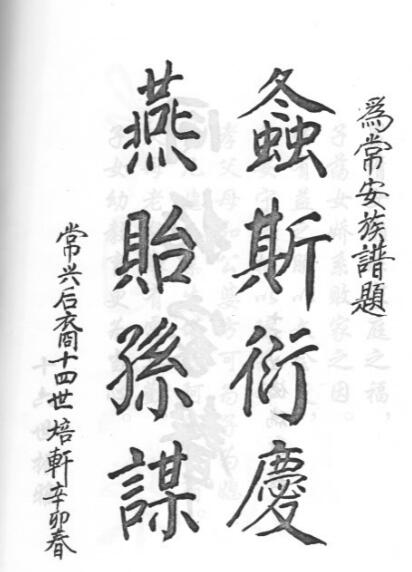 為常安族譜題
螽斯衍慶
燕貽孫謀
常兴后裔十四世培軒辛卯春